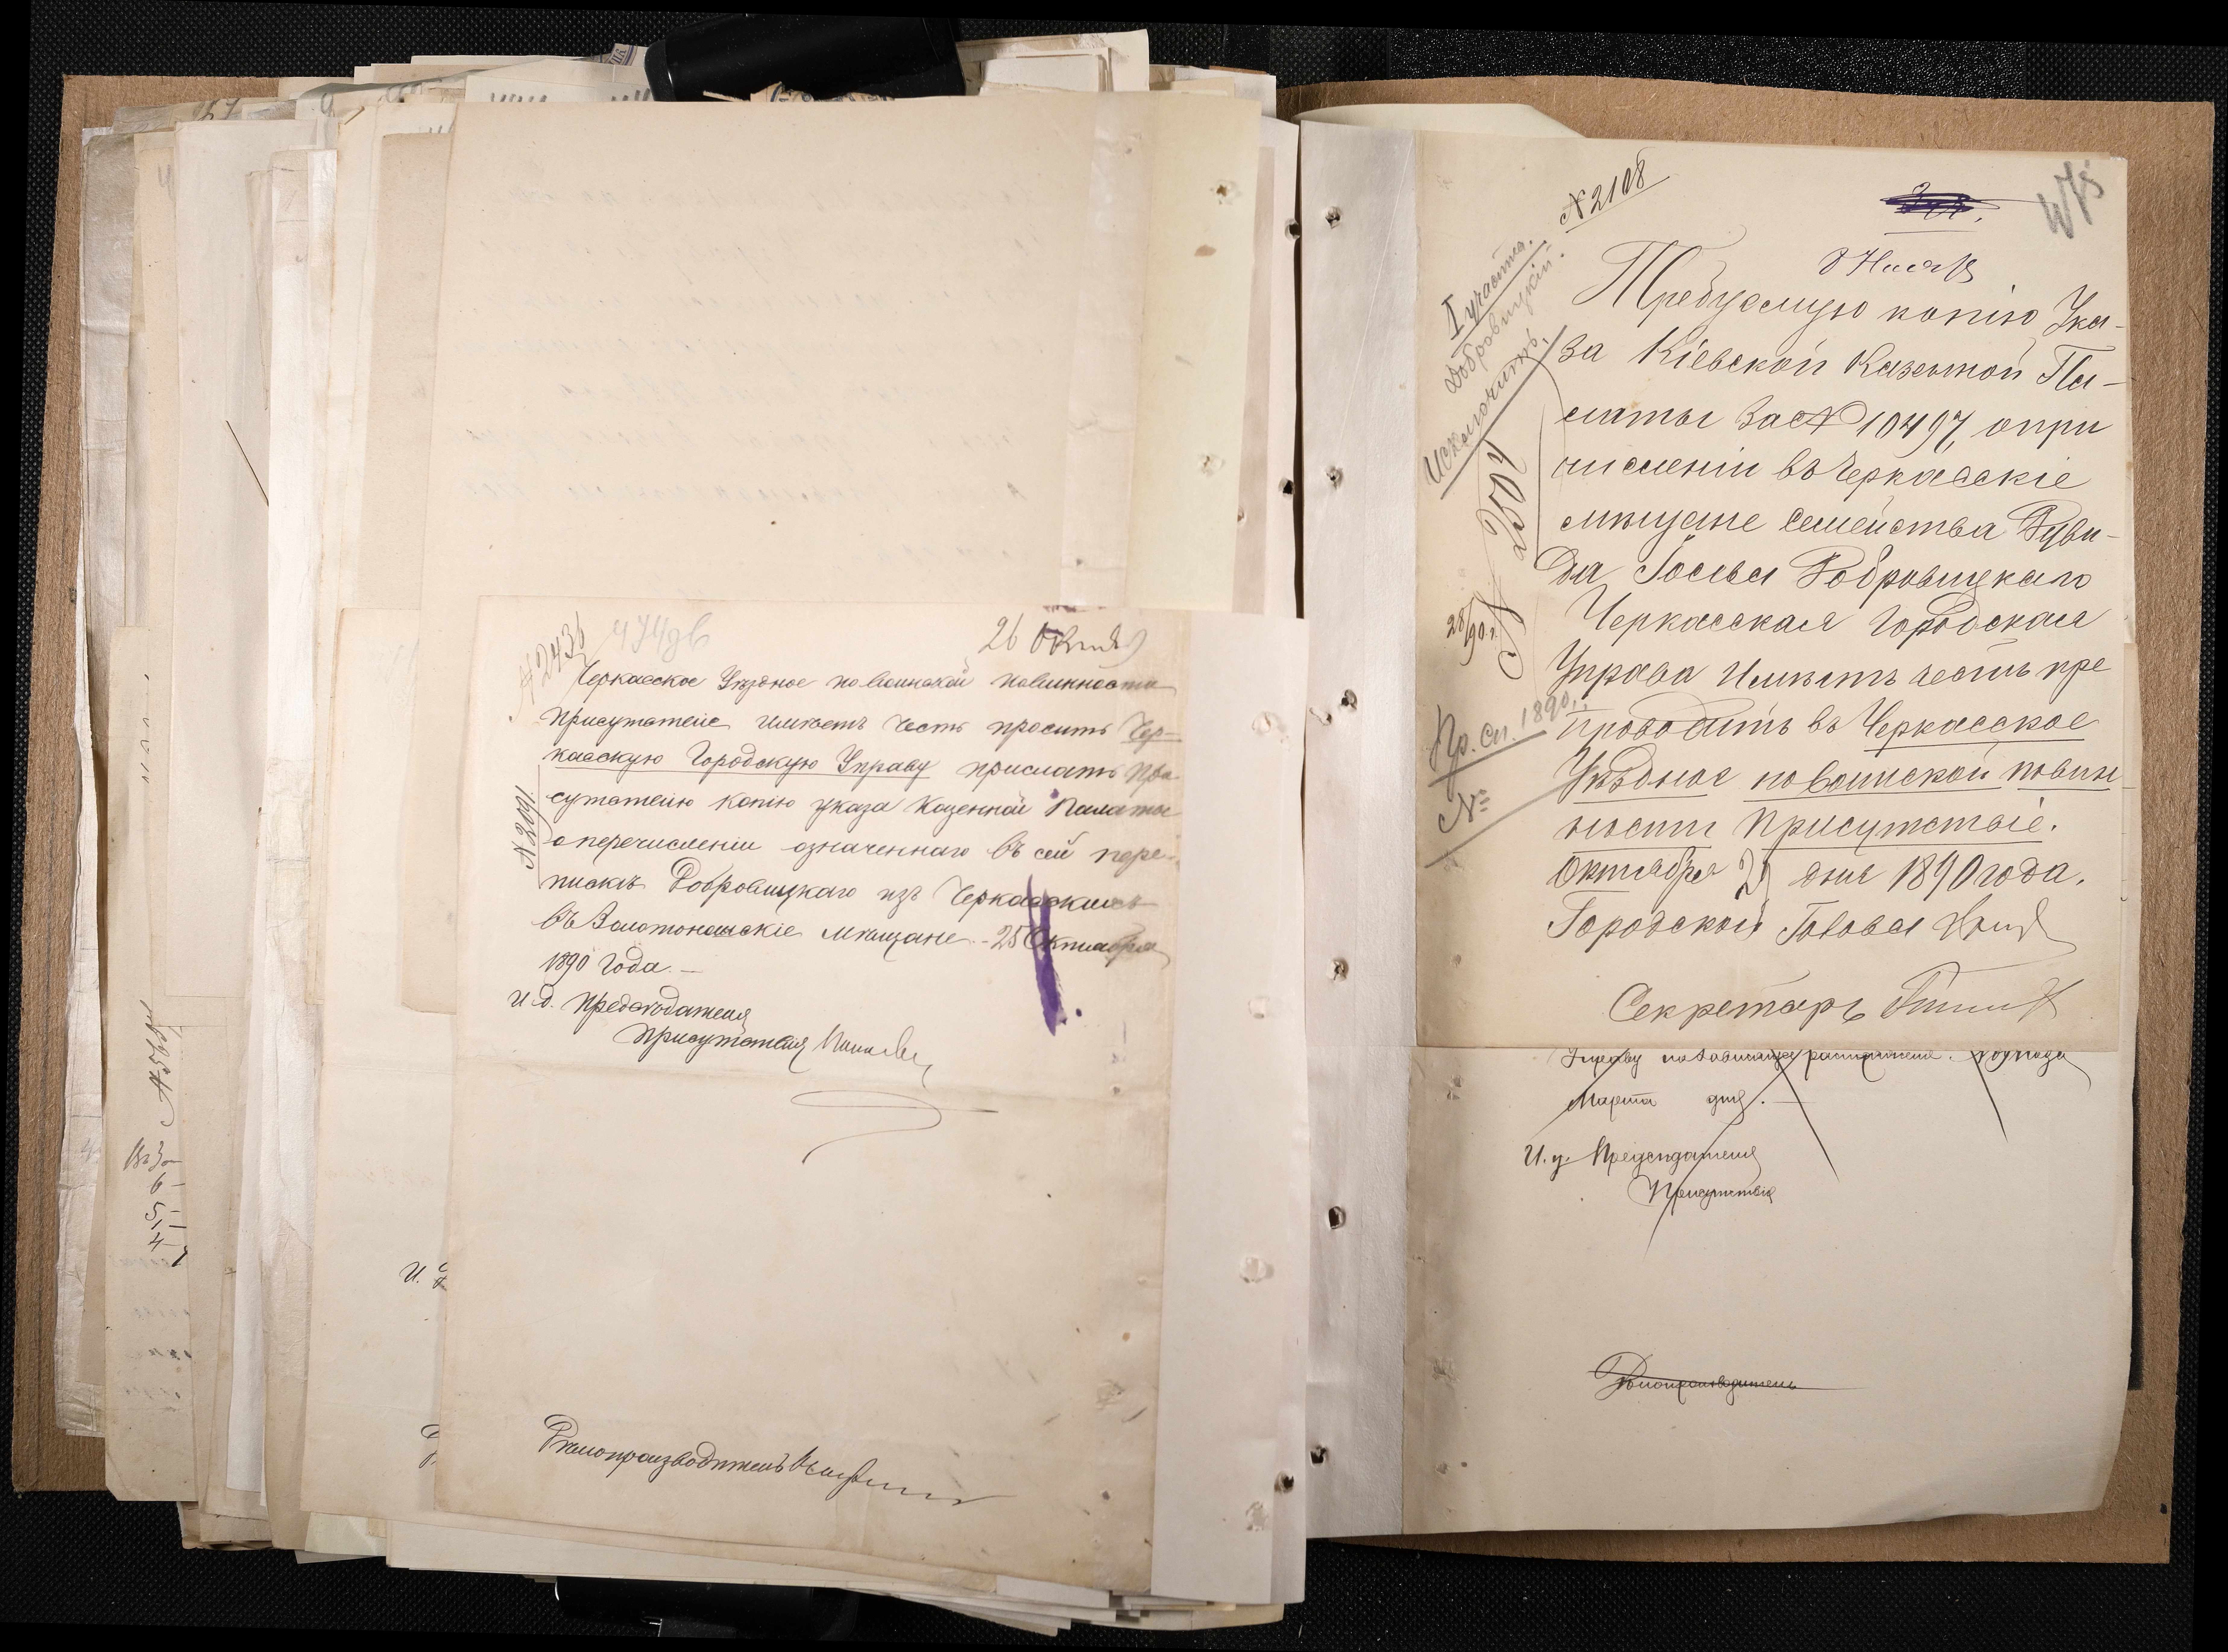 № 2436
474
26 Октяб
Черкасское Уѣздное по воинской повинности
Присутствіе имѣетъ честь просить Чер-
касскую Городскую Управу прислать При
сутствію копію указа Казенной Палаты
о перечисленіи означеннаго въ сей пере-
пискѣ Добровицкаго изъ Черкасскихъ
въ Золотоношскіе мѣщане. - 25 Октября
1890 года. -
№ 2091.
И. д. Предсѣдателя
Присутствія
Дѣлопроизводитель
И.
№ 2108
I участка.
Добровицкій.
Исключить.
28/90 г.
Пр. сп. 1890 г.
№
Требуемую копію Ука-
за Кіевской Казенной Па-
латы за № 10497, о при
численіи въ Черкасскіе
мѣщане семейства Дуви-
да Іосева Добровицкаго
Черкасская Городская
Управа имѣетъ честь пре
проводить въ Черкасское
Уѣздное по воинской повин
ности Присутствіе.
Октября 27 дня 1890 года.
Городской Голова
Секретарь
Марта дня. -
И. д. Предсѣдателя
Присутствія
Дѣлопроизводитель